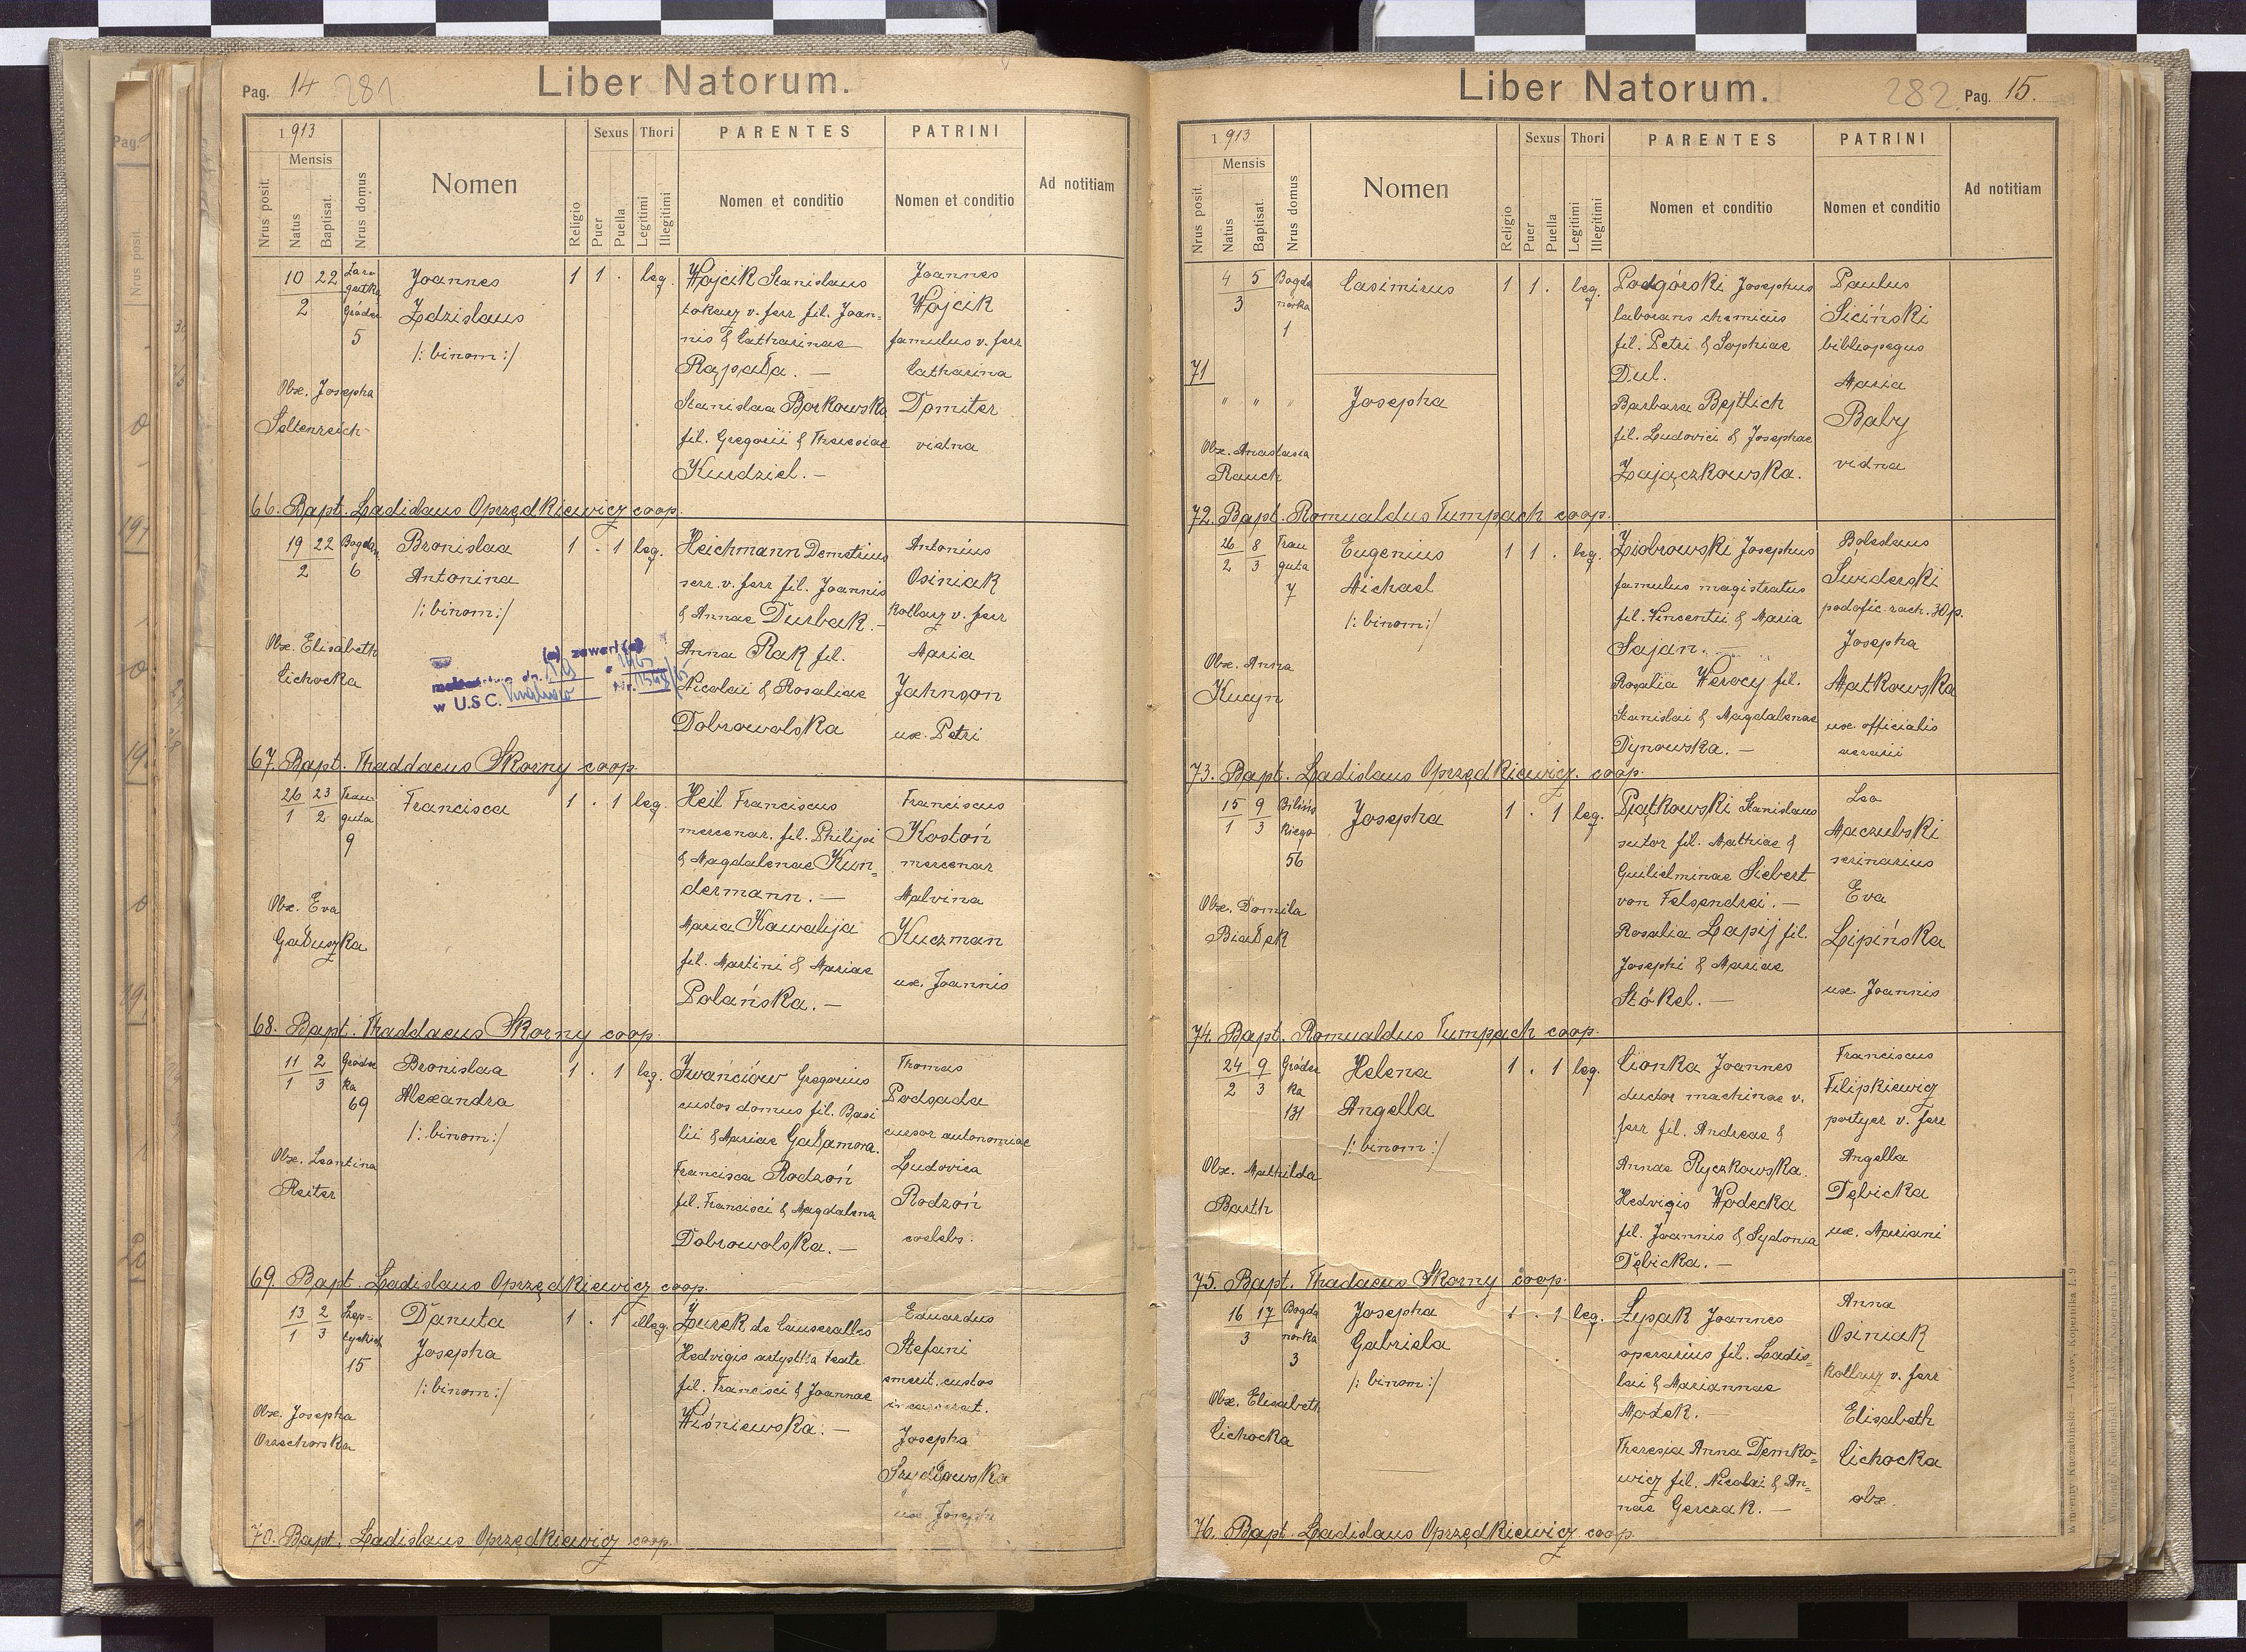 Pag. 14 281
Liber Natorum.
1913
Mensis
Nrus posit.
Natus
Baptisat.
Nrus domus
Nomen
Religio
Sexus
Puer
Puella
Thori
Legitimi
Illegitimi
PARENTES
Nomen et conditio
PATRINI
Nomen et conditio
Ad notitiam
10 22
2
Gróde
5
Joannes
Zdzislaus
/: binom :/
1 1 . leg.
Obx. Josepha
Seltenreich
Wójcik Stanislaus
tokarz v. ferr fil. Joan=
nis & Catharinae
Rąpała. —
Stanislaa Borkowska
fil. Gregorii & Theresiae
Kurdziel. —
Joannes
Wójcik
famulus v. ferr
Catharina
Domiter
vidna
66. Bapt. Ladislaus Oprzędkiewicz coop.
19 22 Bogdan
2 6
Bronislaa
Antonina
/: binom :/
1 . 1 leg.
Obx. Elisabeth
Cichocka
(a) zawarł (a)
w U.S.C.
Heichmann Demetrius
serv. v. ferr fil. Joannis
& Annae Durbak. —
Anna Rak fil.
Nicolai & Rosaliae
Dobrowolska
Antonius
Osiniak
Kollarz v. ferr
Maria
Jahnson
ux. Petri
67. Bapt. Thaddaeus Skorny coop.
26 23 Trau-
1 2 guta
9
Francisca
1 . 1 leg.
Obx. Eva
Gałuszka
Heil Franciscus
mercenar. fil. Philipi
& Magdalenae Kun=
dermann. —
Maria Kawalija
fil. Martini & Mariae
Polańska. —
Franciscus
Kostoń
mercenar
Malvina
Kuczman
ux. Joannis
68. Bapt. Thaddaeus Skorny coop.
11 2 Gródec
1 3 ka
69
Bronislaa
Alexandra
/: binom :/
1 . 1 leg.
Obx. Leontina
Reiter
Iwańciów Gregorius
custos domus fil. Basi
lii & Mariae Gałamora.
Francisca Rodzoń
fil. Francisci & Magdalena
Dobrowolska. —
Thomas
Podsada
cursor autonomiae
Ludovica
Rodzoń
coelebs.
69. Bapt. Ladislaus Oprzędkiewicz coop.
13 2 Szep-
1 3 tyckich
15
Danuta
Josepha
/: binom :/
1 . 1 illeg.
Obx. Josepha
Orzechowska
Żurek de
Hedvigis artystka teatr.
fil. Francisci & Joannae
Wiśniewska. —
Eduardus
Stefani
emerit. custos
incarcerat.
Josepha
Szydłowska
ux. Josephi
70. Bapt. Ladislaus Oprzędkiewicz coop.
Liber Natorum.
282 Pag. 15.
1913
Mensis
Nrus posit.
Natus
Baptisat.
Nrus domus
Nomen
Religio
Sexus
Puer
Puella
Thori
Legitimi
Illegitimi
PARENTES
Nomen et conditio
PATRINI
Nomen et conditio
Ad notitiam
4 5 Bogda
3 nówka
1
Casimirus
1 1 . leg.
71
" " "
Josepha
Obx. Anastasia
Rauch
Podgórski Josephus
laborans chemicus
fil. Petri & Sophiae
Dul.
Barbara Bejtlich
fil. Ludovici & Josephae
Zajączkowska.
Paulus
Siciński
bibliopegus
Maria
Baby
vidna
72. Bapt. Romualdus Tumpach coop.
26 8 Trau
2 3 guta
7
Eugenius
Michael
/: binom :/
1 1 . leg.
Obx. Anna
Kucyn
Ziobrowski Josephus
famulus magistratus
fil. Vincentii & Maria
Sajan. —
Rosalia Werocy fil.
Stanislai & Magdalenae
Dynowska. —
Boleslaus
Świderski
podofic. rach. 30 p.
Josepha
Matkowska
ux. officialis
aerarii
73. Bapt. Ladislaus Oprzędkiewicz. coop.
15 9 Bilińs
1 3 kiego
56
Josepha
1 . 1 leg.
Obx. Domila
Białek
Piątkowski Stanislaus
sutor fil. Mathiae &
Guilielminae Siebert
von Felsendrei. —
Rosalia Lapij fil.
Josephi & Mariae
Stökel. —
Leo
Maczubski
scrinarius
Eva
Lipińska
ux. Joannis
74. Bapt. Romualdus Tumpach coop.
24 9 Gródec
2 3 ka
131
Helena
Angella
/: binom :/
1 . 1 leg.
Obx. Mathilda
Barth
Cionka Joannes
ductor machinae v.
ferr fil. Andreae &
Annae Ryczkowska.
Hedvigis Wodecka
fil. Joannis & Sydonia
Dębicka. —
Franciscus
Filipkiewicz
portyer v. ferr
Angella
Dębicka
ux. Mariani
75. Bapt. Thadaeus Skorny coop.
16 17 Bogda
3 nówka
3
Josepha
Gabriela
/: binom :/
1 . 1 leg.
Obx. Elisabeth
Cichocka
Łysak Joannes
operarius fil. Ladis=
lai & Mariannae
Motek. —
Theresia Anna Demko=
wicz fil. Nicolai & An=
nae Gerczak. —
Anna
Osiniak
Kollarz v. ferr
Elisabeth
Cichocka
obx.
76. Bapt. Ladislaus Oprzędkiewicz coop.
Wincenty Kuczabiński — Lwów, Kopernika L. 9